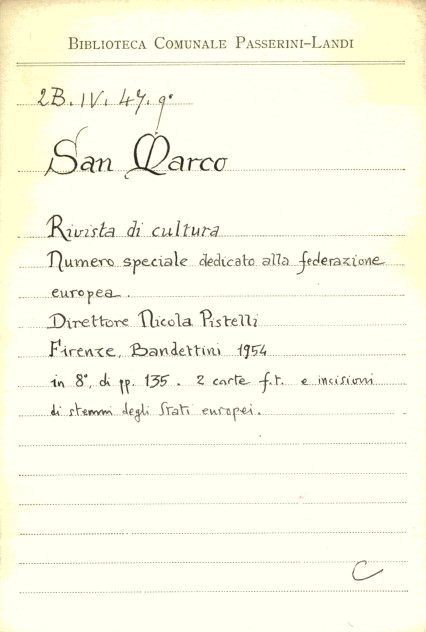 BIBLIOTECA COMUNALE PASSERINI-LANDI
2B. IV. 47. 9°
San Marco
Rivista di cultura
Numero speciale dedicato alla federazione
europea.
Direttore Nicola Pistelli
Firenze, Bandettini 1954
in 8°, di pp. 135. 2 carte f.t. e incisioni
di stemmi degli Stati europei.
C